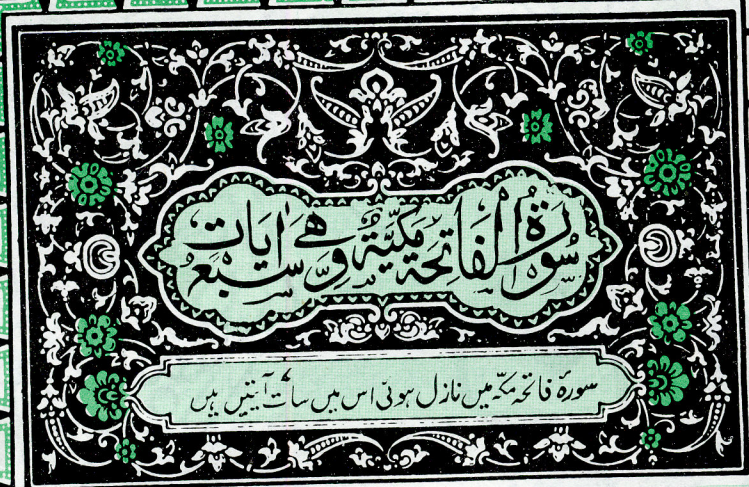 سُوْرَةُ الْفَاتِحَةِ مَكِّيَّةٌ وَّهِیَ سَبْعُ اٰیَاتٍ
سورۂ فاتحہ مکہ میں نازل ہوئی اس میں سات آیتیں ہیں